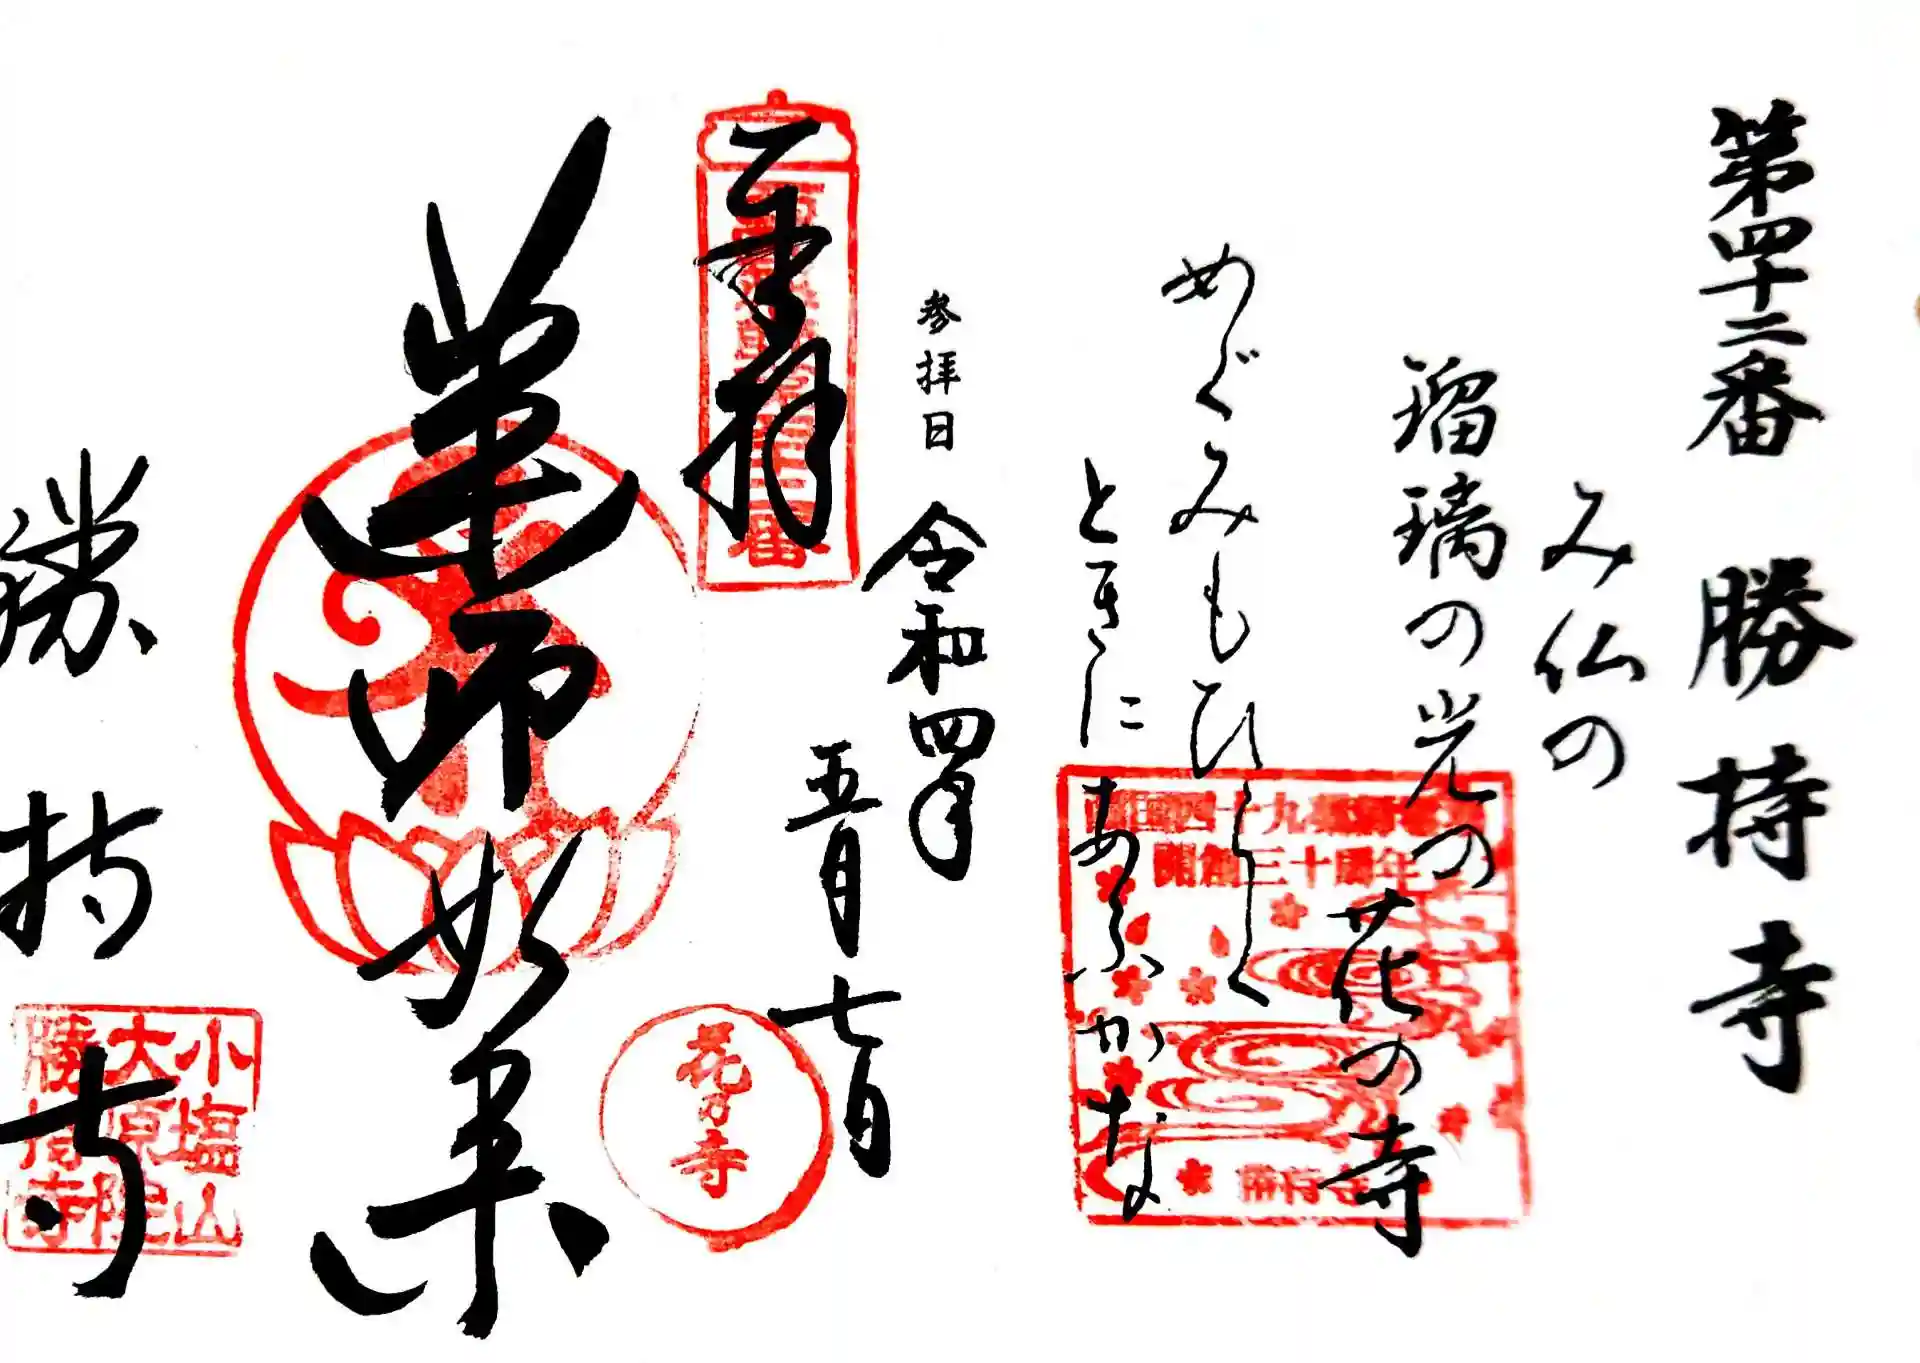 第四十二番 勝持寺
み仏の
瑠璃の光の
花の寺
めぐみもひらく
ときにあふかな
参拝日
令和四年
五月七日
奉拝
西国薬師第四十二番
薬師如来
勝持寺
西国四十九薬師霊場
開創三十周年
勝持寺
花の寺
小塩山
大原院
勝持寺